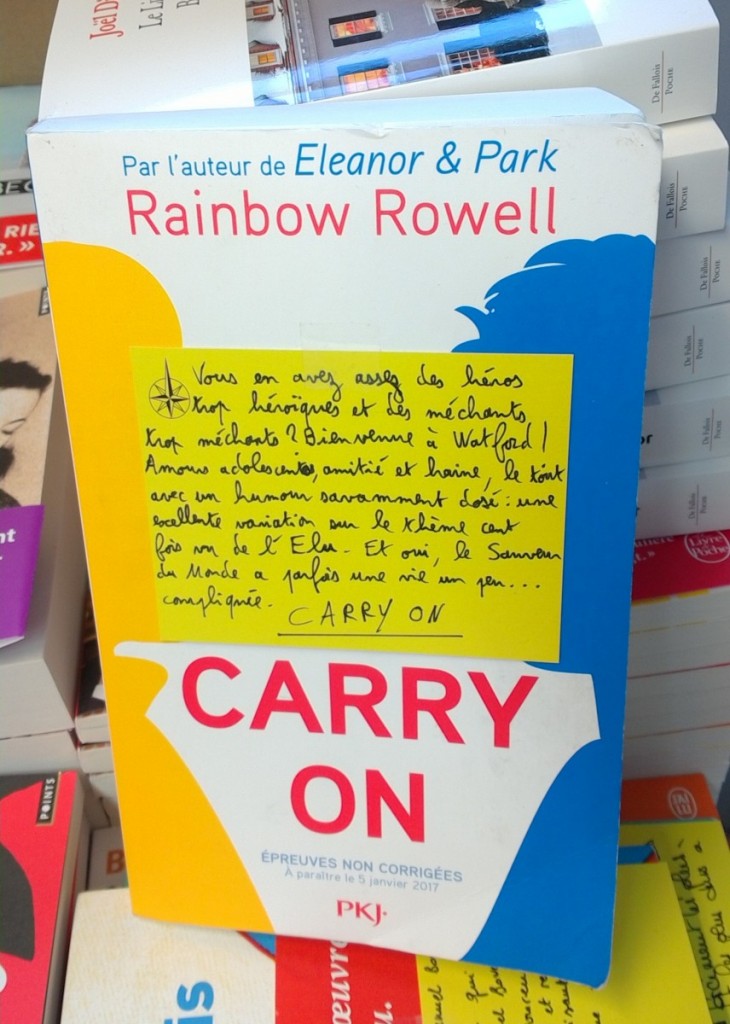 Joël D
Le Li
B
De Fallois
POCHE
De Fallois
POCHE
De Fallois
POCHE
De Fallois
POCHE
De Fallois
POCHE
De Fallois
POCHE
BEC
RIE
R. »
Par l'auteur de Eleanor & Park
Rainbow Rowell
Vous en avez assez des héros
trop héroïques et des méchants
trop méchants ? Bienvenue à Watford !
Amours adolescentes, amitié et haine, le tout
avec un humour savamment dosé : une
excellente variation sur le thème cent
fois vu de l'Elu - Et oui, le Sauveur
du Monde a parfois une vie un peu...
compliquée.
CARRY ON
CARRY
ON
ÉPREUVES NON CORRIGÉES
À paraître le 5 janvier 2017
PKJ.
Livre
Poche
POINTS
J'AI
LU
œuvre